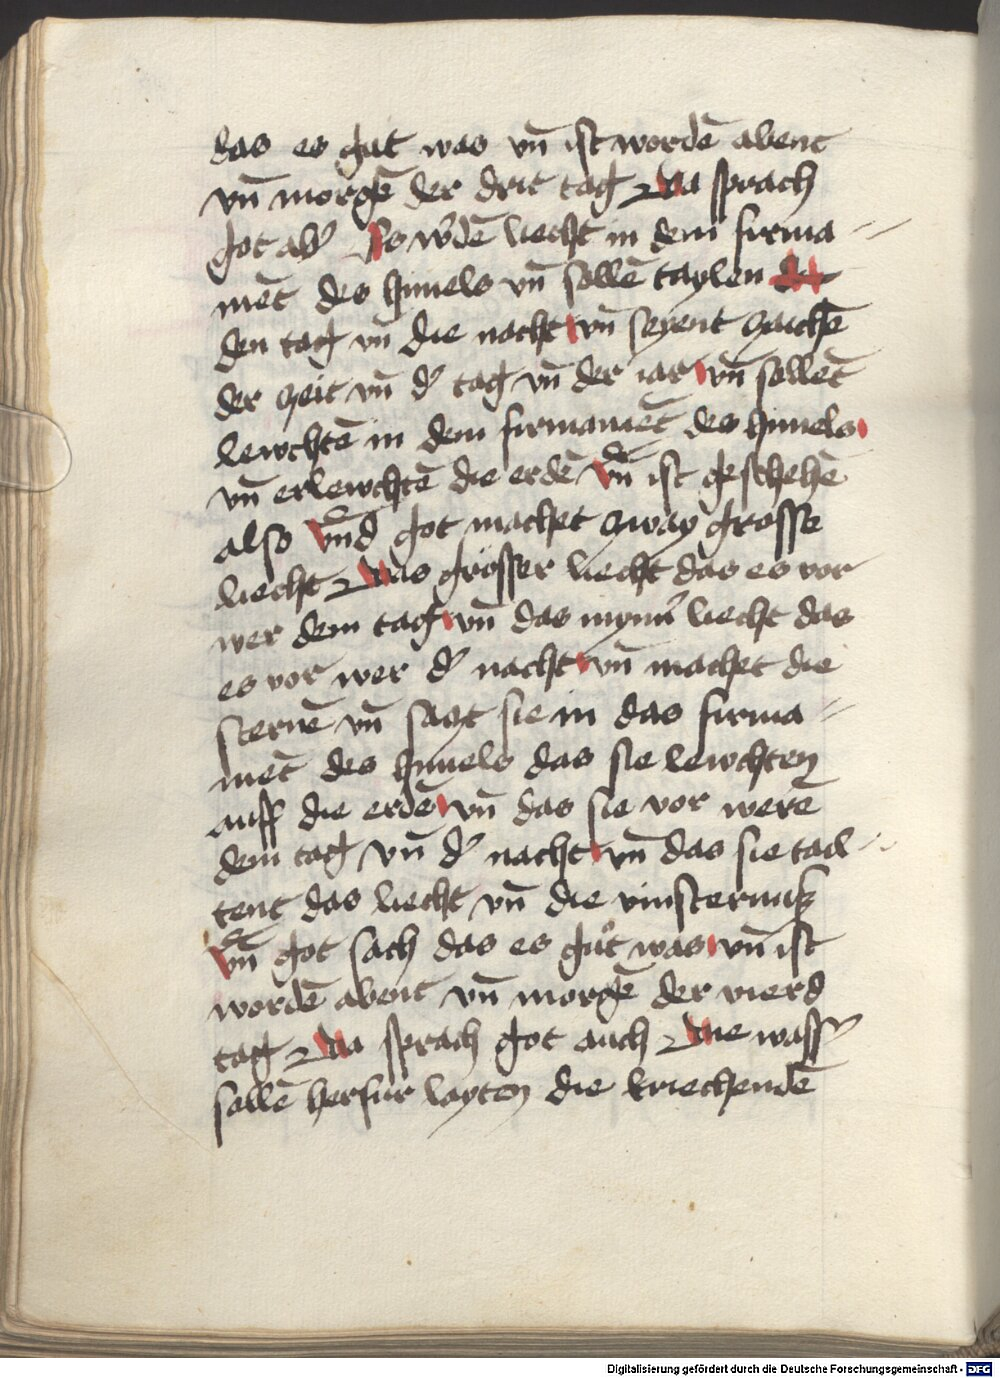 das es gut was vn̄ ist wordē abent
vn̄ morgē der drit tag Da sprach
got ab̾ Es w̾dē liecht in dem firma =
mēt des himels vn̄ sollē taylen
den tag vn̄ die nacht vn̄ seyent zaichē
der zeit vn̄ d̾ tag vn̄ der iar vn̄ sollēt
lewchtē in dem firmamēt des himels
vn̄ erlewchtē die erdē Vn̄ ist geschehē
also Vn̄d got machet zway grosse
liecht Das grösser liecht das es vor
wer dem tag vn̄ das mynn̾ liecht das
es vor wer d̾ nacht vn̄ machet die
sternē vn̄ sazt sie in das firma =
mēt des himels das sie lewchten
auff die erdē vn̄ das sie vor werē
dem tag vn̄ d̾ nacht vn̄ das sie tail =
tent das liecht vn̄ die vinsternuß
Vn̄ got sach das es gůt was vn̄ ist
wordē abent vn̄ morgē der vierd
tag Da sprach got auch Die wass̾
sollē herfur layten die kriechendē
Digitalisierung gefördert durch die Deutsche Forschungsgemeinschaft - DFG